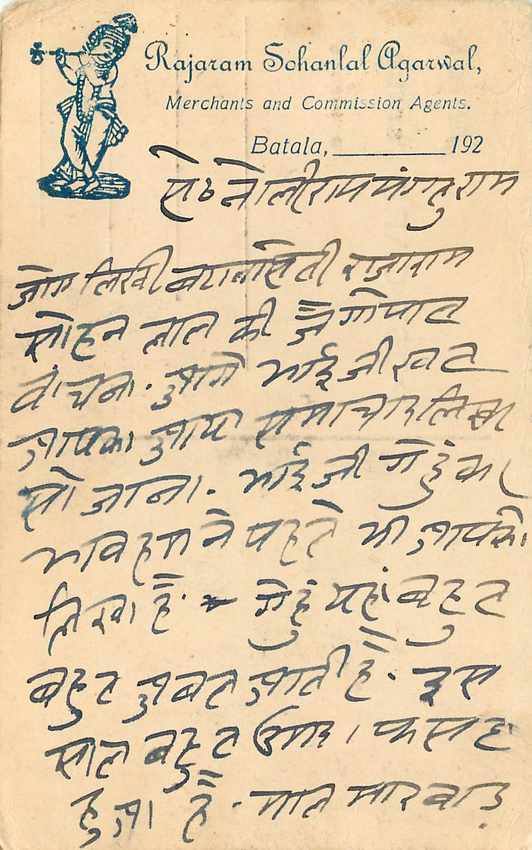 Rajaram Sohanlal Agarwal,
Merchants and Commission Agents.
Batala, __________ 192
सेठ नोलीराम मंगतुराम
जोग लिखी बटालासेती राजाराम
सोहन लाल की जै गोपाल
वांचना. आगे भाई जी खत
आपका आया समाचार लिखा
सो जाना. भाई जी गेहुं का
भाव हम ने पहले भी आपको
लिखा है. गेहुं यहां बहुत
बहुत अवल आती है. इस
साल बहुत उमदा फसल
हुआ है. माल मारवाड़